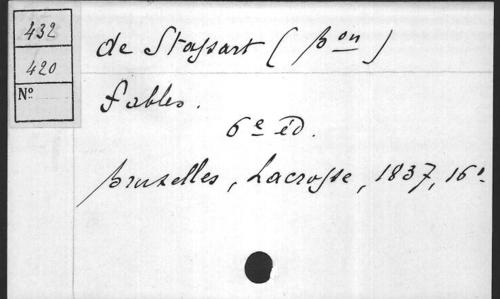 432
420
Nº
de Stassart (Bon)
Fables.
6e éd.
Bruxelles, Lacrosse, 1837, 16º.